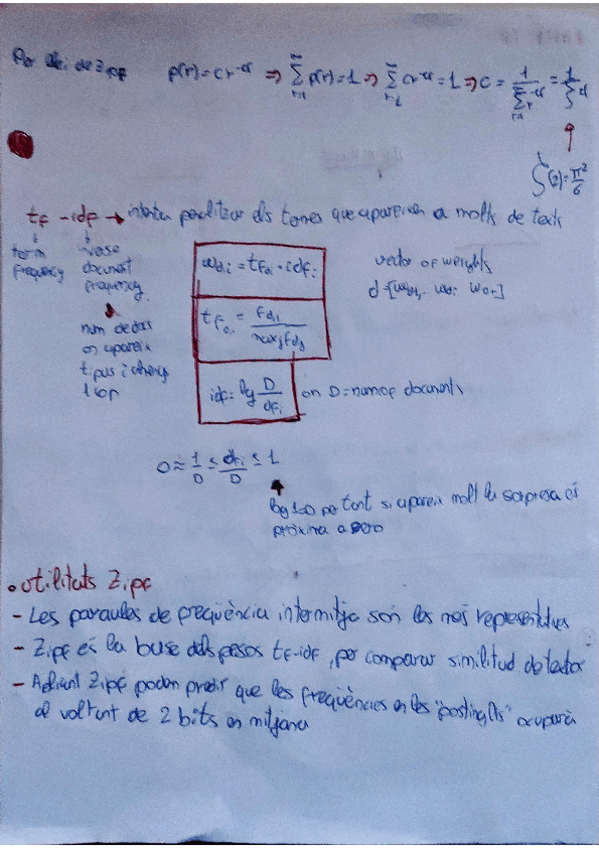 Per llei de Zipf p(r) = c r^-α ⇒ ∑ p(r) = 1 ⇒ ∑ c r^-α = 1 ⇒ c = 1/∑ r^-α = 1/ζ
ζ(2) = π²/6
tf - idf → intenten penalitzar els termes que apareixen a molts de texts
term frequency
inverse document frequency
num de docs on apareix tipus i almenys 1 cop
w d,i = tf d,i · idf i
tf d,i = f d,i / max j f d,j
idf i = log D/df i on D = num of documents
vector of weights
d = [w d,1, w d,i w d,T]
0 ≈ 1/D ≤ df i/D ≤ 1
log 1=0 per tant si apareix molt la sorpresa és
pròxima a zero
• Utilitats Zipf
- Les paraules de freqüència intermitja són les més representatives
- Zipf és la base dels pesos tf-idf, per comparar similitud de textos
- Zipf poden predir que les freqüències en les "posting lists" ocuparà
al voltant de 2 bits en mitjana